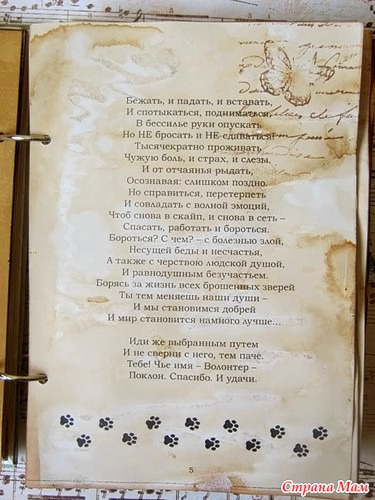 Бежать, и падать, и вставать,
И спотыкаться, подниматься,
В бессилье руки опускать
Но НЕ бросать и НЕ сдаваться!
Тысячекратно проживать
Чужую боль, и страх, и слезы.
И от отчаянья рыдать,
Осознавая: слишком поздно.
Но справиться, перетерпеть
И совладать с волной эмоций,
Чтоб снова в скайп, и снова в сеть –
Спасать, работать и бороться.
Бороться? С чем? – с болезнью злой,
Несущей беды и несчастья,
А также с черствою людской душой,
И равнодушным безучастьем.
Борясь за жизнь всех брошенных зверей
Ты тем меняешь наши души –
И мы становимся добрей
И мир становится намного лучше...
Иди же выбранным путем
И не сверни с него, тем паче.
Тебе! Чье имя – Волонтер –
Поклон. Спасибо. И удачи.
5
Страна Мам